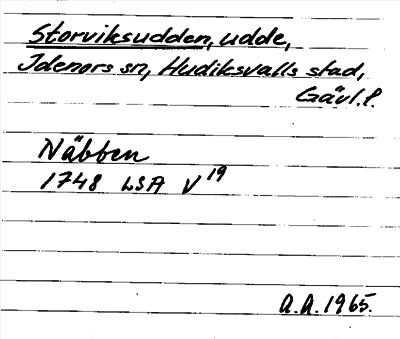 Storviksudden, udde,
Idenors sn, Hudiksvalls stad,
Gävl. l.
Näbben
1748 LSA V 19
A.A. 1965.